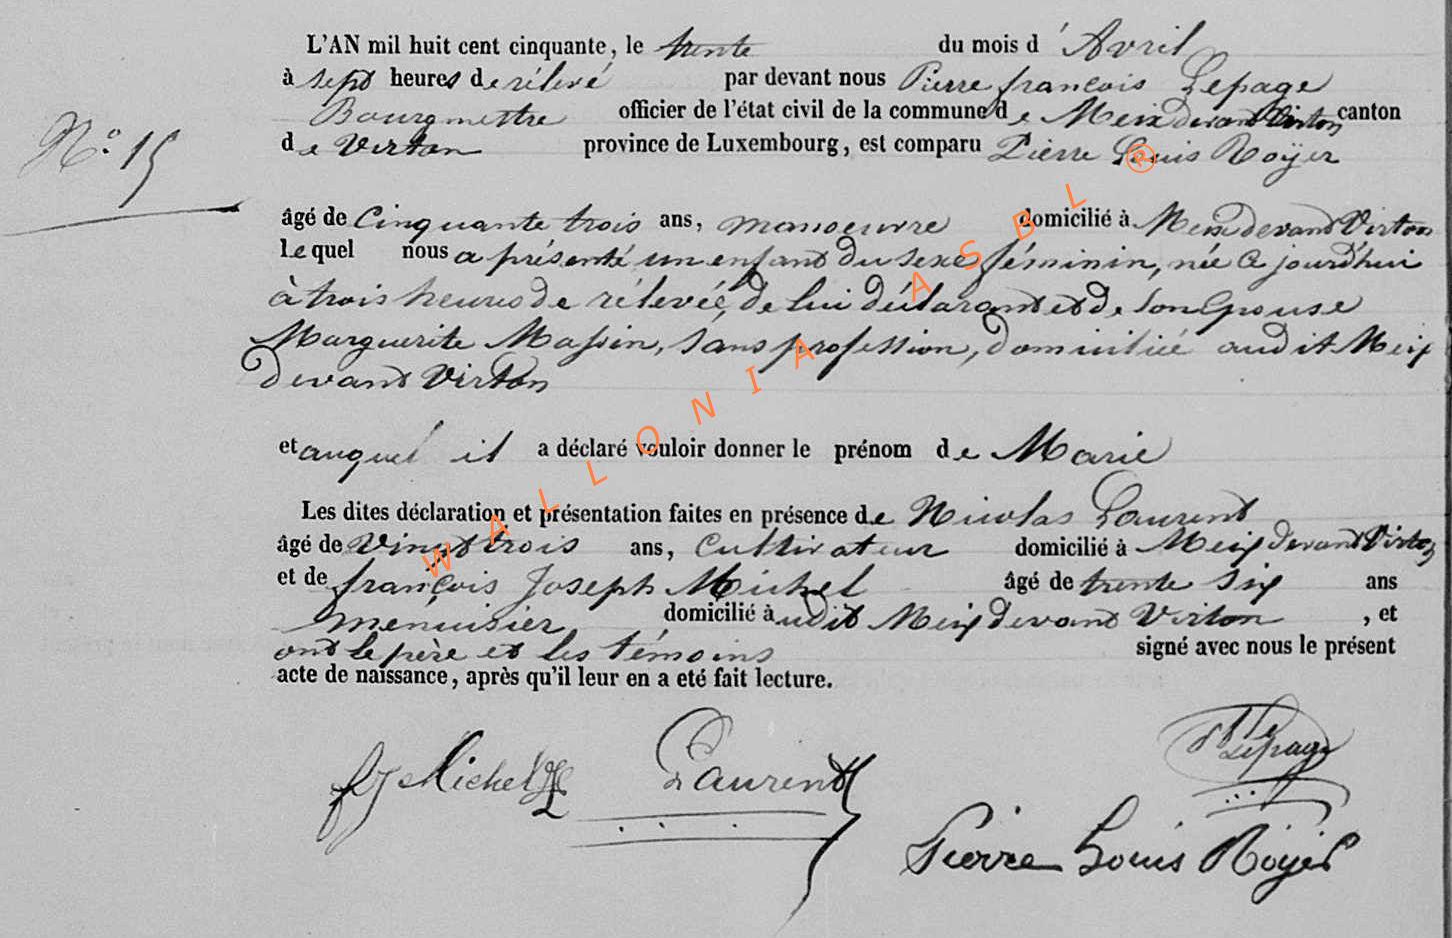 L'AN mil huit cent cinquante, le trente du mois d'Avril
à sept heures de rélevé par devant nous Pierre françois Lepage
Bourgmettre officier de l'état civil de la commune de Meix devant Virton canton
de Virton province de Luxembourg, est comparu Pierre Louis Roÿer
N.º 15
âgé de Cinquante trois ans, manoeuvre domicilié à Meix devant Virton
lequel nous a présenté un enfant du sexe féminin, née ce jourd'hui
à trois heures de rélevée, de lui déclarant et de son Epouse
Marguerite Massin, sans profession, domiciliée audit Meix
devant Virton
et auquel il a déclaré vouloir donner le prénom de Marie
Les dites déclaration et présentation faites en présence de Nicolas Laurent
âgé de Vingt trois ans, Cultivateur domicilié à Meix devant Virton
et de françois Joseph Michel âgé de trente six ans
menuisier domicilié audit Meix devant Virton, et
ont le père et les témoins signé avec nous le présent
acte de naissance, après qu'il leur en a eté fait lecture.
Lepage
fJ Michel Laurent
Pierre Louis Roÿer
WALLONIA ASBL ®